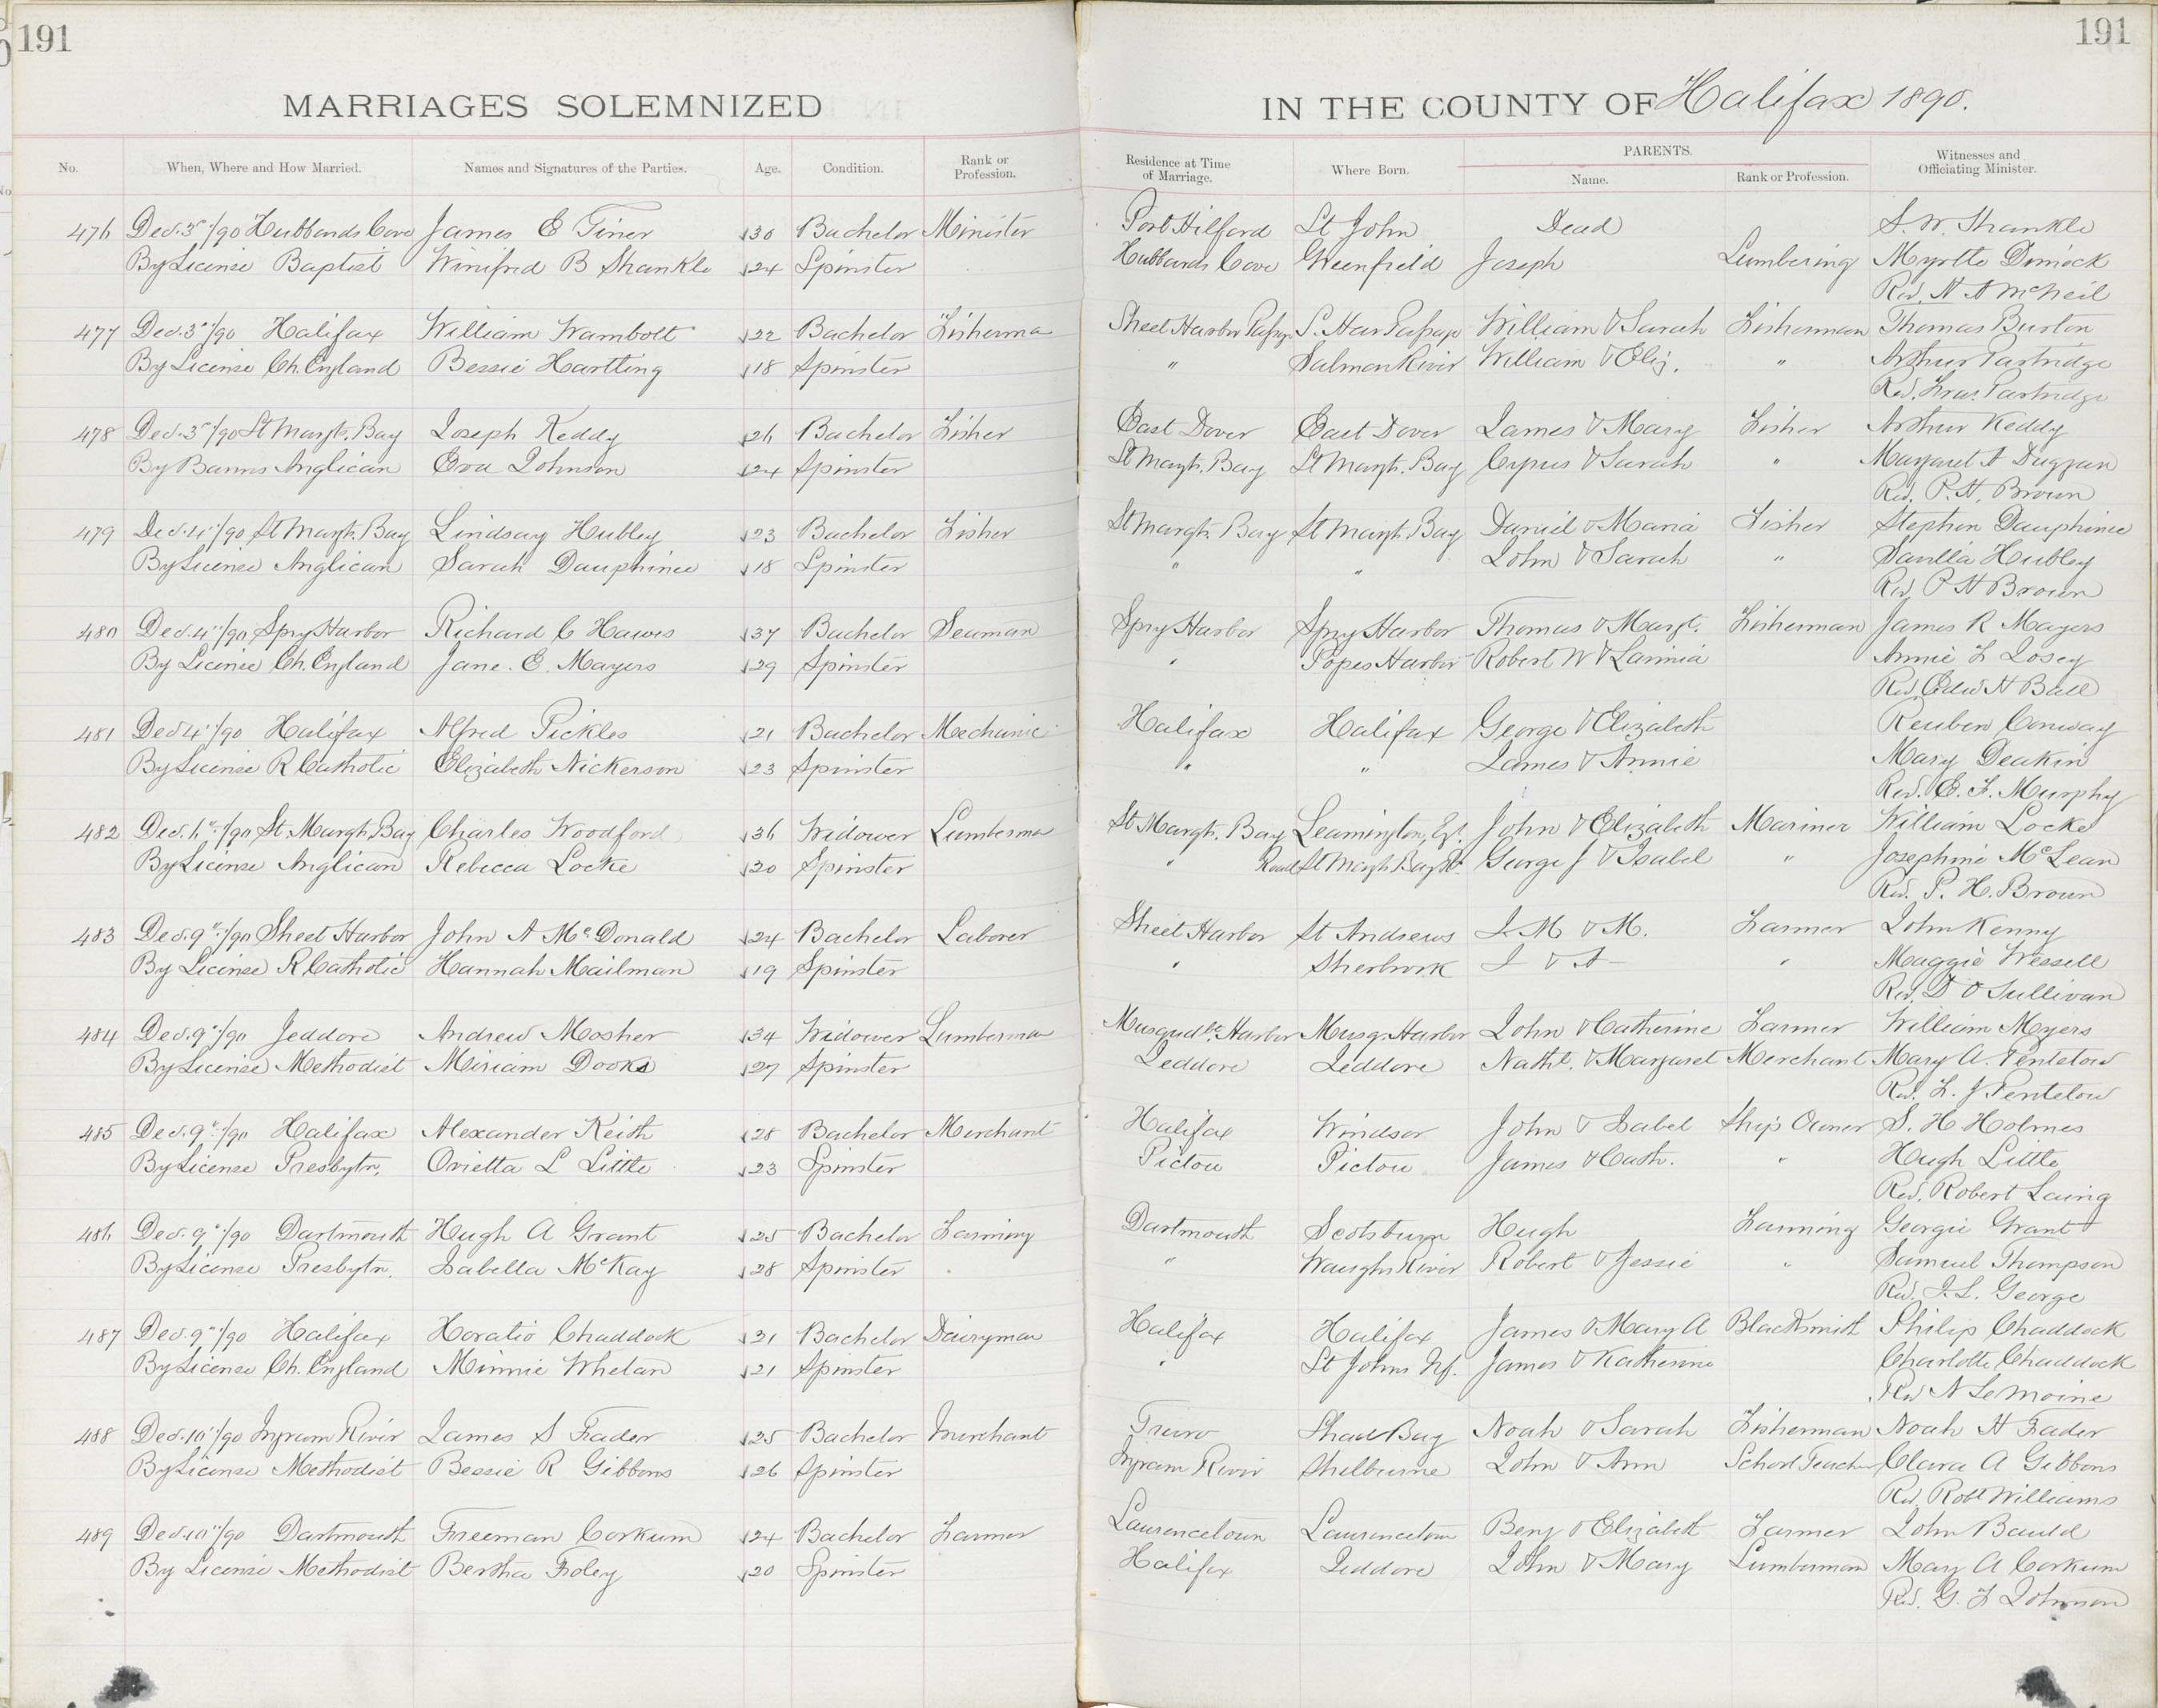 191
191
MARRIAGES SOLEMNIZED IN THE COUNTY OF Halifax 1890.
No. When, Where and How Married. Names and Signatures of the Parties. Age. Condition. Rank or Profession. Residence at Time of Marriage. Where Born. PARENTS. Name. Rank or Profession. Witnesses and Officiating Minister.
476 Dec. 3"/90 Hubbards Cove James E Tiner 30 Bachelor Minister Port Hilford St John Dead S. W. Shankle
By License Baptist Winifred B Shankle 24 Spinster Hubbards Cove Greenfield Joseph Lumbering Myrtle Dimock
Rev. A A McNeil
477 Dec. 3"/90 Halifax William Wambolt 22 Bachelor Fisherma Sheet Harbor Passage S. Har Passage William & Sarah Fisherman Thomas Burton
By License Ch. England Bessie Hartling 18 Spinster " Salmon River William & Eliz. " Arthur Partridge
Rev. Fras. Partridge
478 Dec. 3"/90 St Margts. Bay Joseph Keddy 26 Bachelor Fisher East Dover East Dover James & Mary Fisher Arthur Keddy
By Banns Anglican Eva Johnson 24 Spinster St Margts. Bay St Margts. Bay Cyrus & Sarah " Margaret A Duggan
Rev. P. H. Brown
479 Dec. 4"/90 St Margts. Bay Lindsay Hubley 23 Bachelor Fisher St Margts. Bay St Margts. Bay Daniel & Maria Fisher Stephen Dauphinee
By License Anglican Sarah Dauphinee 18 Spinster " " John & Sarah " Savilla Hubley
Rev. P H Brown
480 Dec. 4"/90 Spry Harbor Richard C Hawes 37 Bachelor Seaman Spry Harbor Spry Harbor Thomas & Margt. Fisherman James R Mayers
By License Ch. England Jane. E. Mayers 29 Spinster " Popes Harbor Robert W & Lavinia Annie L Losey
Rev. Edw H Ball
481 Dec 4"/90 Halifax Alfred Pickles 21 Bachelor Mechanic Halifax Halifax George & Elizabeth Reuben Conway
By License R Catholic Elizabeth Nickerson 23 Spinster " " James & Annie Mary Deakin
Rev. E. F. Murphy
482 Dec. 6"/90 St. Margts Bay Charles Woodford 36 Widower Lumberma St Margts. Bay Leamington, Egl. John & Elizabeth Mariner William Locke
By License Anglican Rebecca Locke 20 Spinster " Road St Margts Bay Rd. George J & Isabel " Josephine McLean
Rev. P. H. Brown
483 Dec. 9"/90 Sheet Harbor John A McDonald 24 Bachelor Laborer Sheet Harbor St Andrews J. M & M. Farmer John Kenny
By License R Catholic Hannah Mailman 19 Spinster " Sherbrook J & A Maggie Wessell
Rev. D O Sullivan
484 Dec. 9"/90 Jeddore Andrew Mosher 34 Widower Lumberma Musquodbt. Harbor Musq. Harbor John & Catherine Farmer William Myers
By License Methodist Miriam Dooks 27 Spinster Jeddore Jeddore Nathl. & Margaret Merchant Mary A. Pentelow
Rev. F. J Pentelow
485 Dec. 9"/90 Halifax Alexander Keith 28 Bachelor Merchant Halifax Windsor John & Isabel Ship Owner S. H Holmes
By License Presbytn. Ovietta L Little 23 Spinster Pictou Pictou James & Cath. " Hugh Little
Rev. Robert Laing
486 Dec. 9"/90 Dartmouth Hugh A Grant 25 Bachelor Farming Dartmouth Scotsburn Hugh Farming Georgie Grant
By License Presbytn. Isabella McKay 28 Spinster " Waughs River Robert & Jessie " Samuel Thompson
Rev. J. L. George
487 Dec. 9"/90 Halifax Horatio Chaddock 31 Bachelor Dairyman Halifax Halifax James & Mary A Blacksmith Philip Chaddock
By License Ch. England Minnie Whelan 21 Spinster " St Johns Nf. James & Katherine Charlotte Chaddock
Rev N LeMoine
488 Dec. 10"/90 Ingram River James S Frader 25 Bachelor Merchant Truro Shad Bay Noah & Sarah Fisherman Noah H Frader
By License Methodist Bessie R Gibbons 26 Spinster Ingram River Shelburne John & Ann School Teacher Clara A Gibbons
Rev. Robt Williams
489 Dec. 10"/90 Dartmouth Freeman Corkum 24 Bachelor Farmer Lawrencetown Lawrencetown Benj & Elizabeth Farmer John Bauld
By License Methodist Bertha Foley 20 Spinster Halifax Jeddore John & Mary Lumberman Mary A Corkum
Rev. G. F Johnson